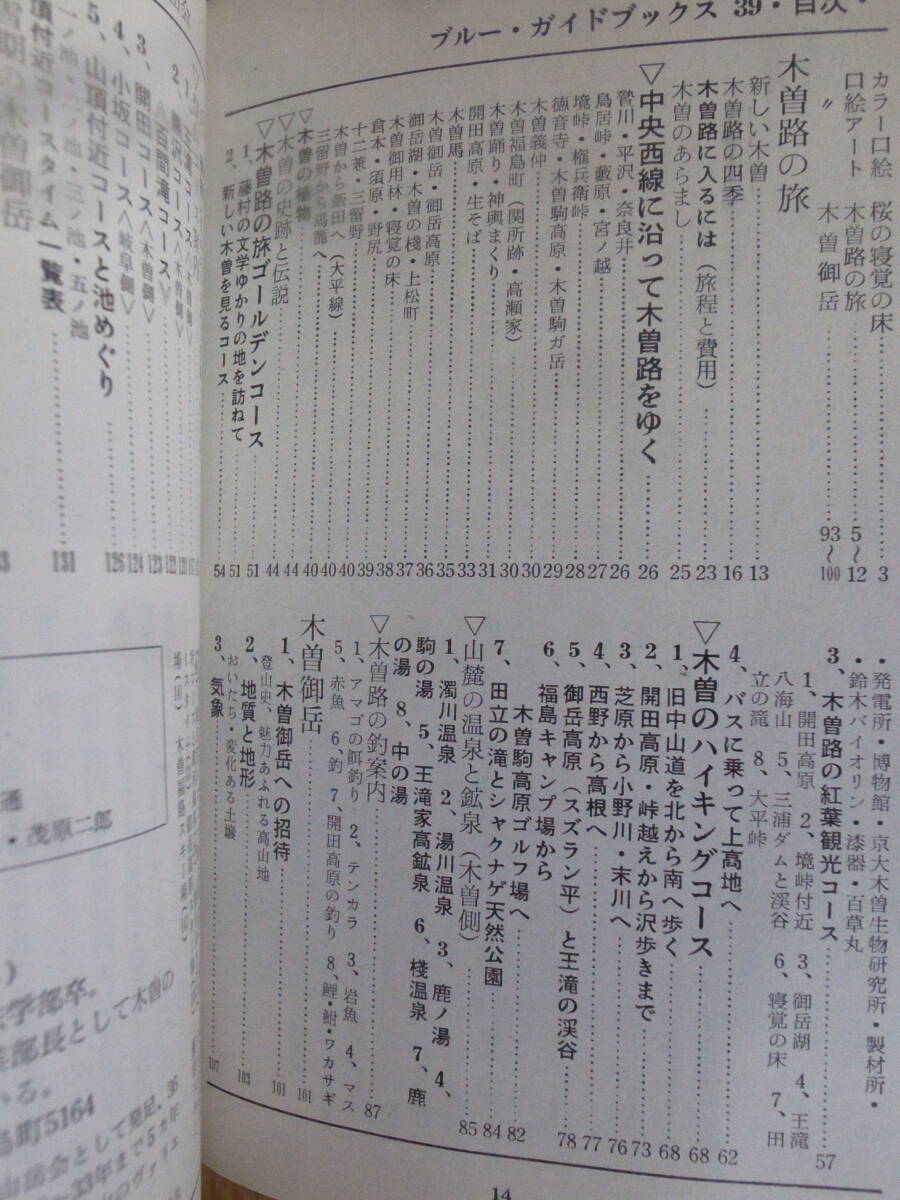 ブルー・ガイドブックス 39・目次・
カラー口絵 桜の寝覚の床 3
口絵アート 木曽路の旅 5〜12
〃 木曽御岳 93〜100
木曽路の旅
新しい木曽 13
木曽路の四季 16
木曽路に入るには(旅程と費用) 23
木曽のあらまし 25
▽中央西線に沿って木曽路をゆく 26
贄川・平沢・奈良井 26
鳥居峠・藪原・宮ノ越 27
境峠・権兵衛峠 28
徳音寺・木曽駒高原・木曽駒ガ岳 29
木曽義仲 30
木曽福島町(関所跡・高瀬家) 30
木曽踊り・神輿まくり 31
開田高原・生そば 33
木曽馬 35
木曽御岳・御岳高原 36
御岳湖・木曽の棧・上松町 37
木曽御用林・寝覚の床 38
倉本・須原・野尻 39
十二兼・三留野 40
木曽から飯田へ(大平線) 40
三留野から馬籠へ 40
▽木曽の植物 40
▽木曽の史跡と伝説 44
▽木曽路の旅ゴールデンコース 51
1、藤村の文学ゆかりの地を訪ねて 51
2、新しい木曽を見るコース 54
・発電所・博物館・京大木曽生物研究所・製材所・
・鈴木バイオリン・漆器・百草丸
3、木曽路の紅葉観光コース 57
1、開田高原 2、境峠付近 3、御岳湖 4、王滝
八海山 5、三浦ダムと渓谷 6、寝覚の床 7、田
立の滝 8、大平峠
4、バスに乗って上高地へ 62
▽木曽のハイキングコース 68
1、旧中山道を北から南へ歩く 68
2、開田高原・峠越えから沢歩きまで 73
3、芝原から小野川・末川へ 76
4、西野から高根へ 77
5、御岳高原(スズラン平)と王滝の渓谷 78
6、福島キャンプ場から
木曽駒高原ゴルフ場へ 82
7、田立の滝とシャクナゲ天然公園 84
▽山麓の温泉と鉱泉(木曽側) 85
1、濁川温泉 2、湯川温泉 3、鹿ノ湯 4、
駒の湯 5、王滝家高鉱泉 6、棧温泉 7、鹿
の湯 8、中の湯
▽木曽路の釣案内 87
1、アマゴの餌釣り 2、テンカラ 3、岩魚 4、マス
5、赤魚 6、釣り 7、開田高原の釣り 8、鯉・鮒・ワカサギ
木曽御岳 101
1、木曽御岳への招待 101
登山史、魅力あふれる高山地
2、地質と地形 103
おいたち・変化ある土壌
3、気象 107
14
3、開田コース<木曽側>
4、小坂コース<岐阜側>
5、山頂付近コースと池めぐり
一ノ池・二ノ池・三ノ池・五ノ池
頂付近コースタイム一覧表
雪期の木曽御岳
122
123
124
126
131
・茂原二郎
学部卒。
部長として木曽の
いる。
島町5164
山岳会として発足、36
33年まで5カ年